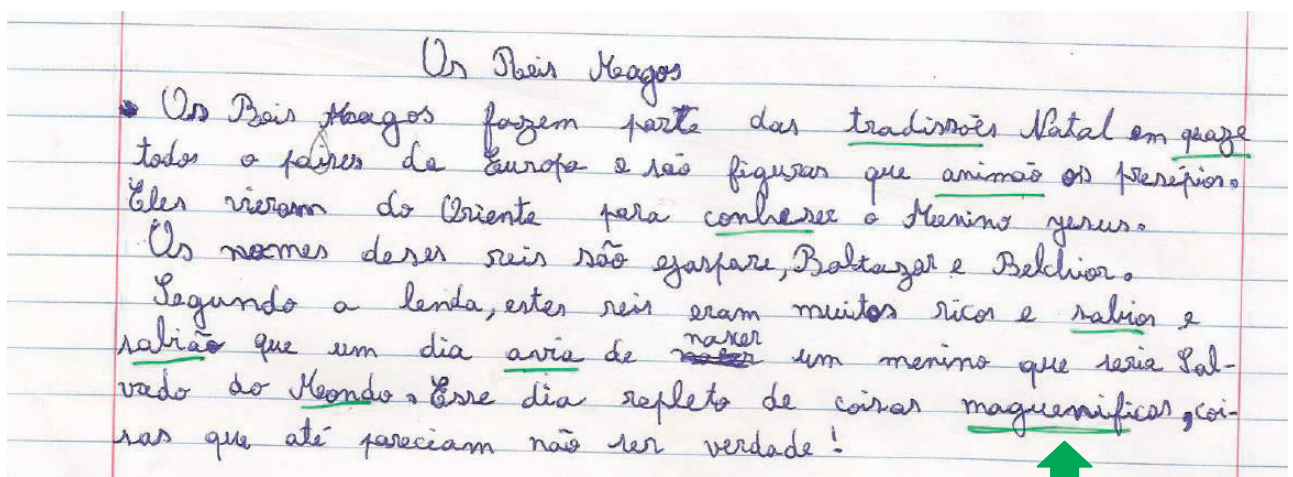 Os Reis Magos
Os Reis Magos fazem parte das tradissões Natal em quaze
todos o paises da Europa e são figuras que animão os presépios.
Eles vieram do Oriente para conheser o Menino Jesus.
Os nomes deses reis são Gaspare, Baltazar e Belchior.
Segundo a lenda, estes reis eram muitos ricos e sabios e
sabião que um dia avia de naser um menino que seria Sal-
vado do Mondo. Esse dia repleto de coisas maguenificas, coi-
sas que até pareciam não ser verdade!